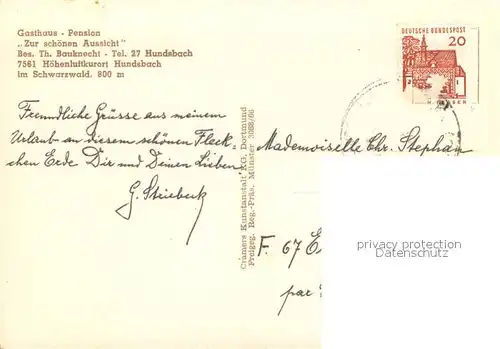 Gasthaus - Pension
„Zur schönen Aussicht"
Bes. Th. Bauknecht - Tel. 27 Hundsbach
7561 Höhenluftkurort Hundsbach
im Schwarzwald, 800 m
DEUTSCHE BUNDESPOST
20
Freundliche Grüsse aus meinem
Urlaub an diesem schönen Fleck-
chen Erde Dir und Deinen Lieben
G. Striebeck
Cramers Kunstanstalt KG, Dortmund
Mademoiselle Chr. Stephan
F. 67
par
privacy protection
Datenschutz